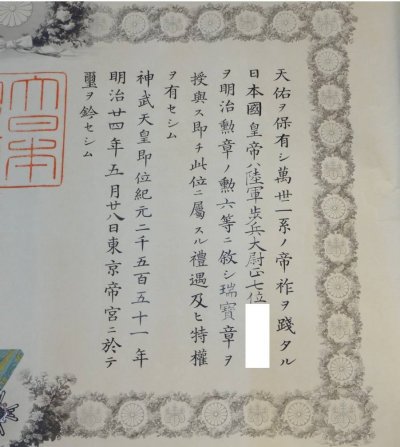 天佑ヲ保有シ萬世一系ノ帝祚ヲ踐タル
日本國皇帝ハ陸軍歩兵大尉正七位
ヲ明治勲章ノ勲六等ニ敘シ瑞寶章ヲ
授與ス即チ此位ニ屬スル禮遇及ヒ特權
ヲ有セシム
神武天皇即位紀元二千五百五十一年
明治廿四年五月廿八日東京帝宮ニ於テ
璽ヲ鈐セシム